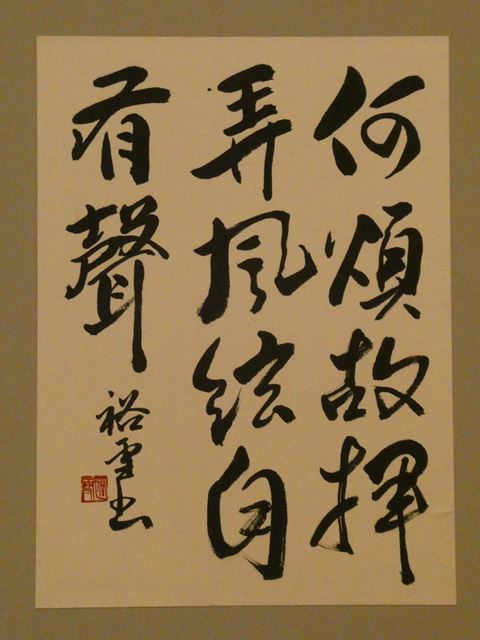 何煩故揮
弄風絃自
有聲
裕雪書